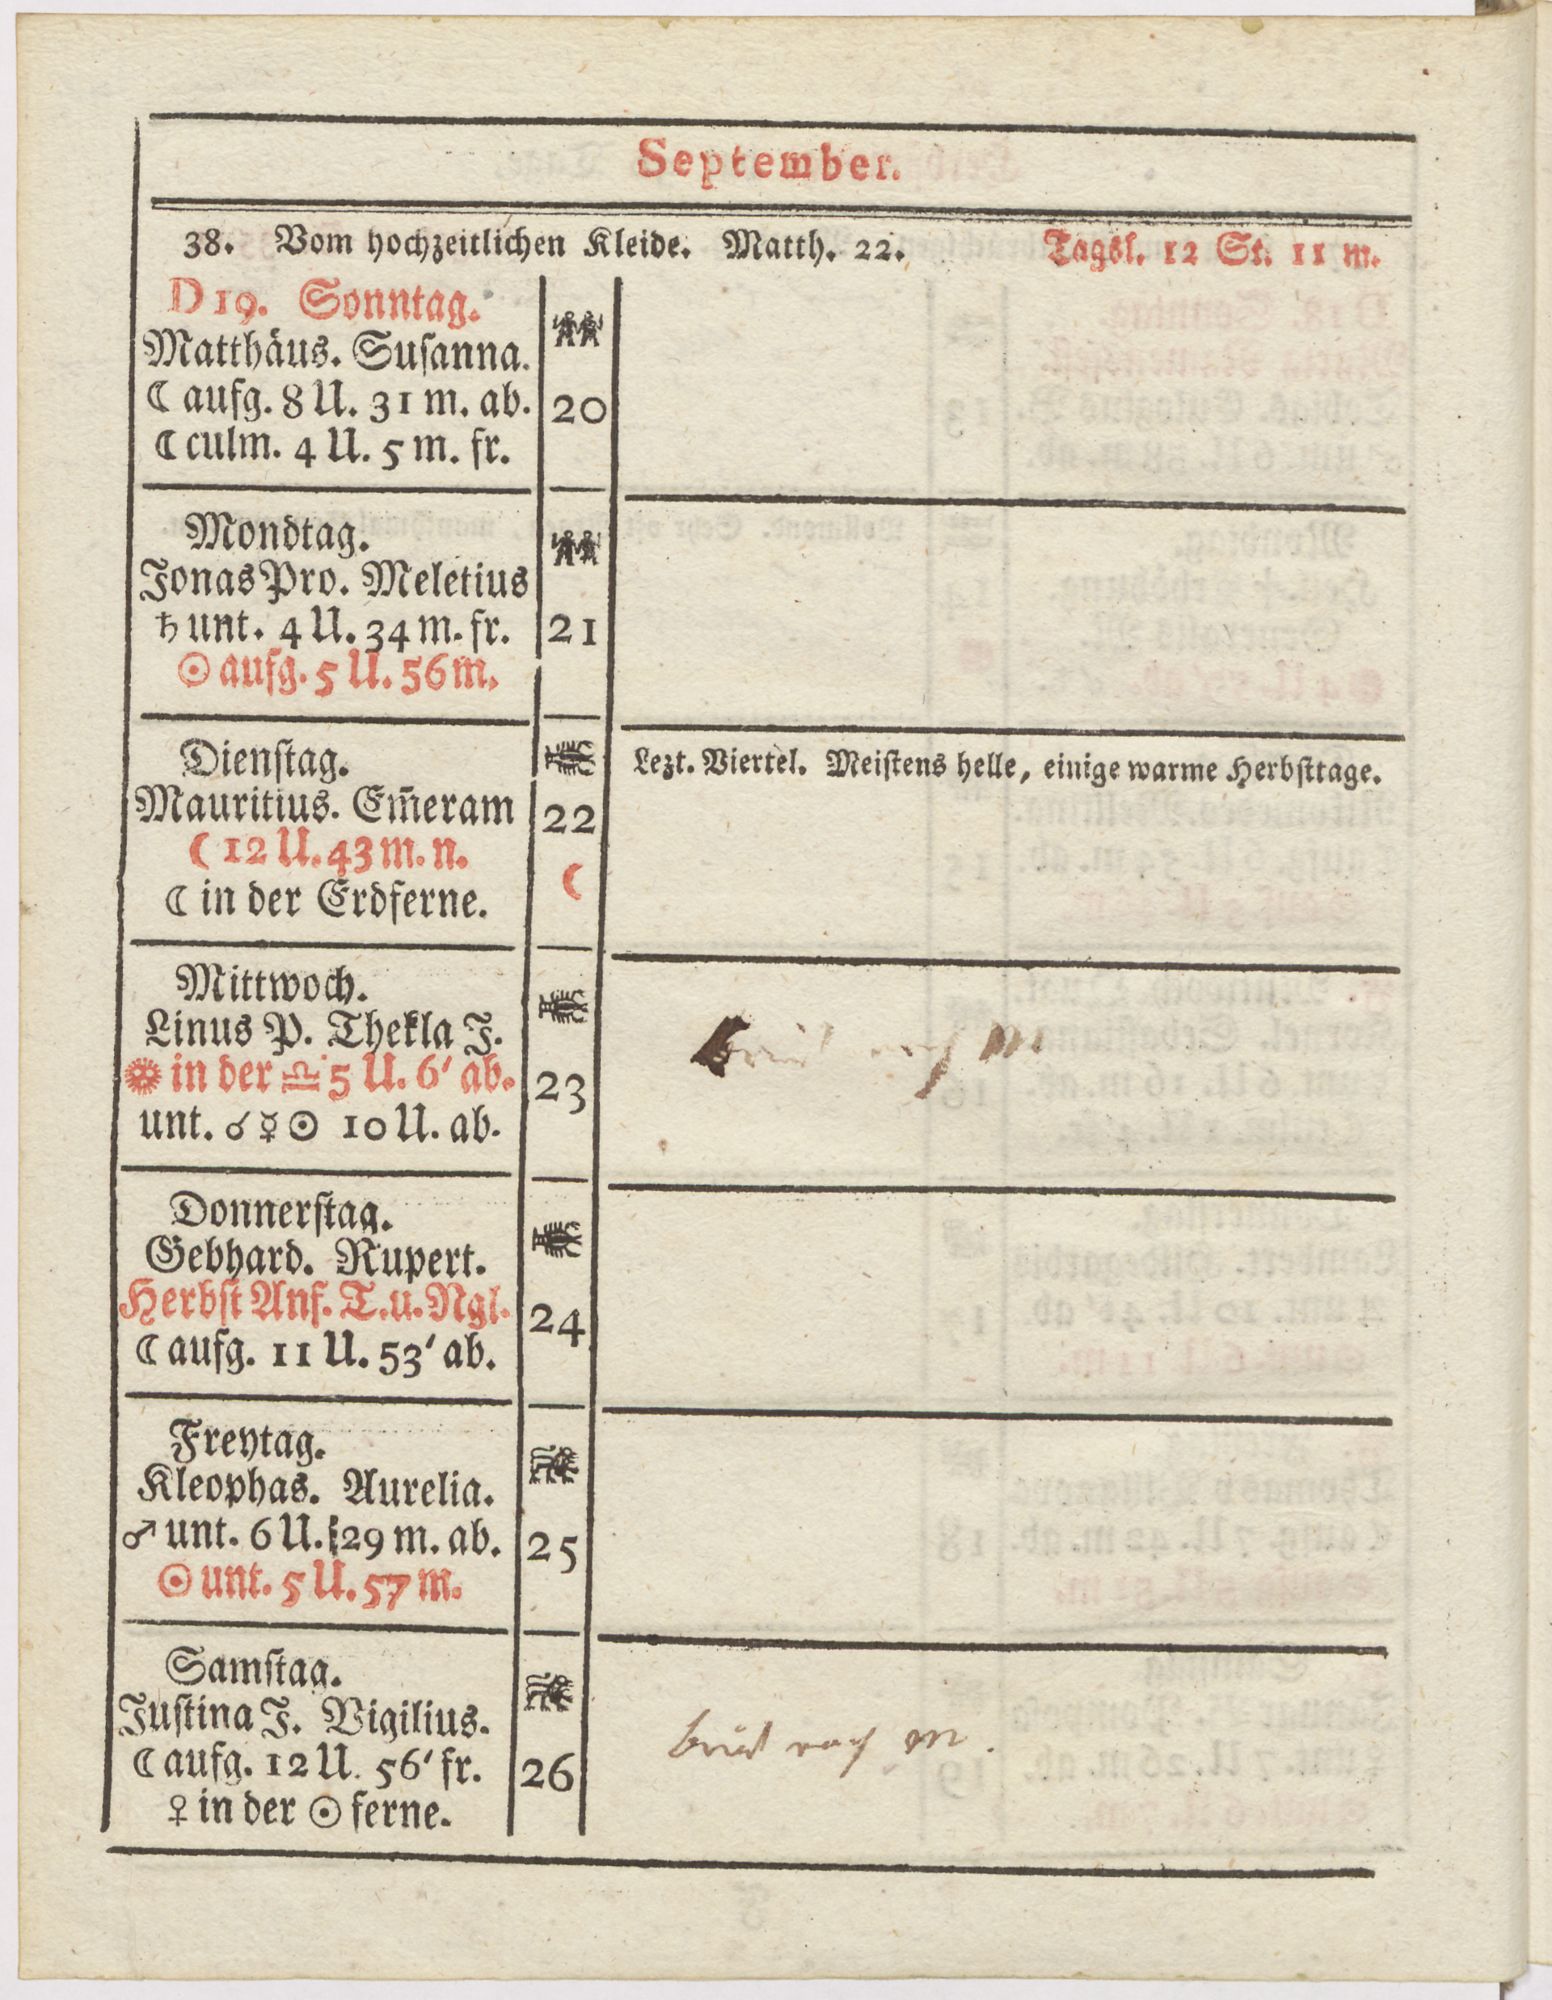 September.
38. Vom hochzeitlichen Kleide. Matth. 22. Tagsl. 12 St. 11 m.
D 19. Sonntag.
Matthäus. Suſanna.
☾ aufg. 8 U. 31 m. ab. 20
☾ culm. 4 U. 5 m. fr.
Mondtag.
Jonas Pro. Meletius
♄ unt. 4 U. 34 m. fr. 21
☉ aufg. 5 U. 56 m.
Dienſtag.
Lezt. Viertel. Meiſtens helle, einige warme Herbſttage.
Mauritius. Em̃eram 22
☾ 12 U. 43 m. n.
☾ in der Erdferne. ☾
Mittwoch.
Linus P. Thekla J.
☀ in der ♎ 5 U. 6' ab. 23
unt. ☌ ☿ ☉ 10 U. ab.
Donnerſtag.
Gebhard. Rupert.
Herbſt Anf. T. u. Ngl. 24
☾ aufg. 11 U. 53' ab.
Freytag.
Kleophas. Aurelia.
♂ unt. 6 U. 29 m. ab. 25
☉ unt. 5 U. 57 m.
Samſtag.
Juſtina J. Vigilius.
nach M.
☾ aufg. 12 U. 56' fr. 26
♀ in der ☉ ferne.